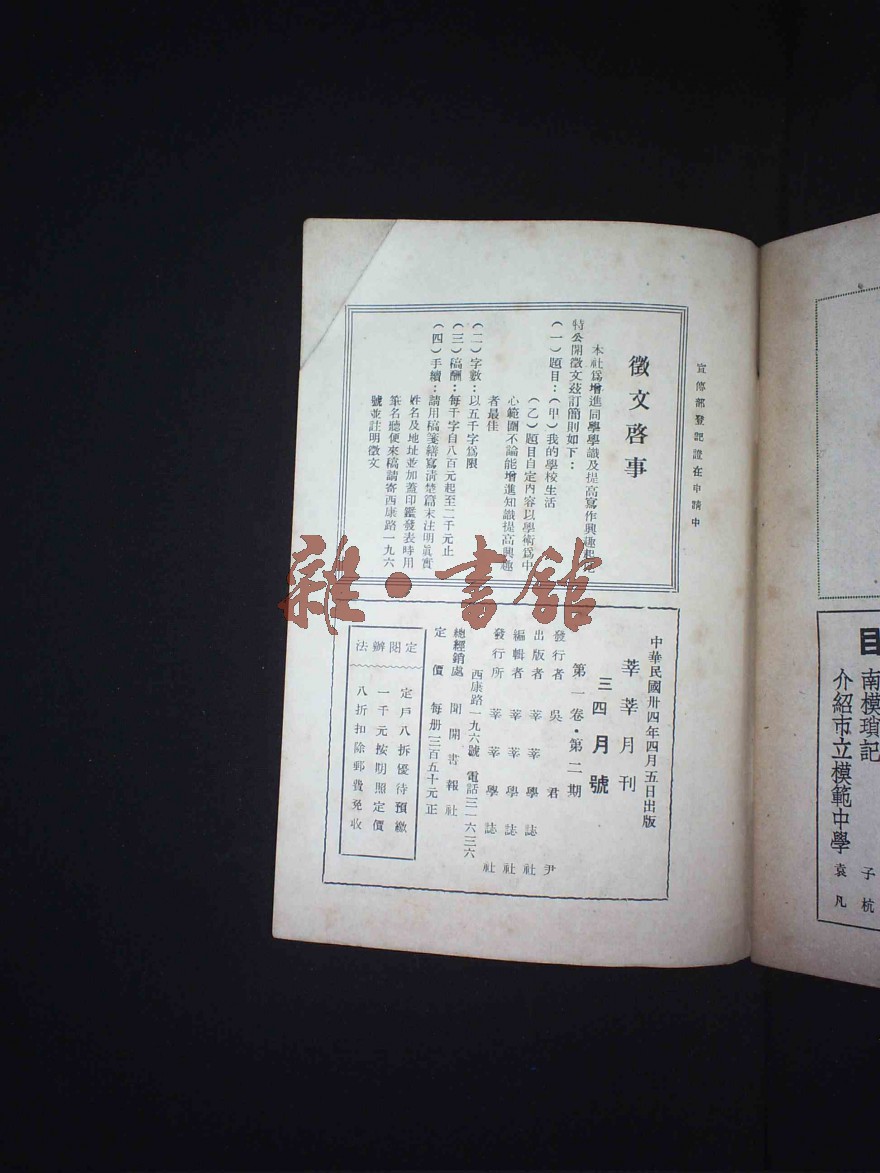 宣傳部登記證在申請中
徵文啓事
本社爲增進同學學識及提高寫作興趣起見
特公開徵文茲訂簡則如下：
（一）題目：（甲）我的學校生活
（乙）題目自定內容以學術爲中
心範圍不論能增進知識提高興趣
者最佳
（二）字數：以五千字爲限
（三）稿酬：每千字自八百元起至二千元止
（四）手續：請用稿箋繕寫清楚篇末注明眞實
姓名及地址並加蓋印鑑發表時用
筆名聽便來稿請寄西康路一九六
號並註明徵文
中華民國卅四年四月五日出版
莘莘月刊
三四月號
第一卷・第二期
發行者 吳君尹
出版者 莘莘學誌社
編輯者 莘莘學誌社
發行所 莘莘學誌社
西康路一九六號 電話三一六三六
總經銷處 聞開書報社
定價 每册三百五十元正
定閱辦法
定戶八拆優待預繳
一千元按期照定價
八折扣除郵費免收
目
南模瑣記 子杭
介紹市立模範中學 袁凡
雜・書館